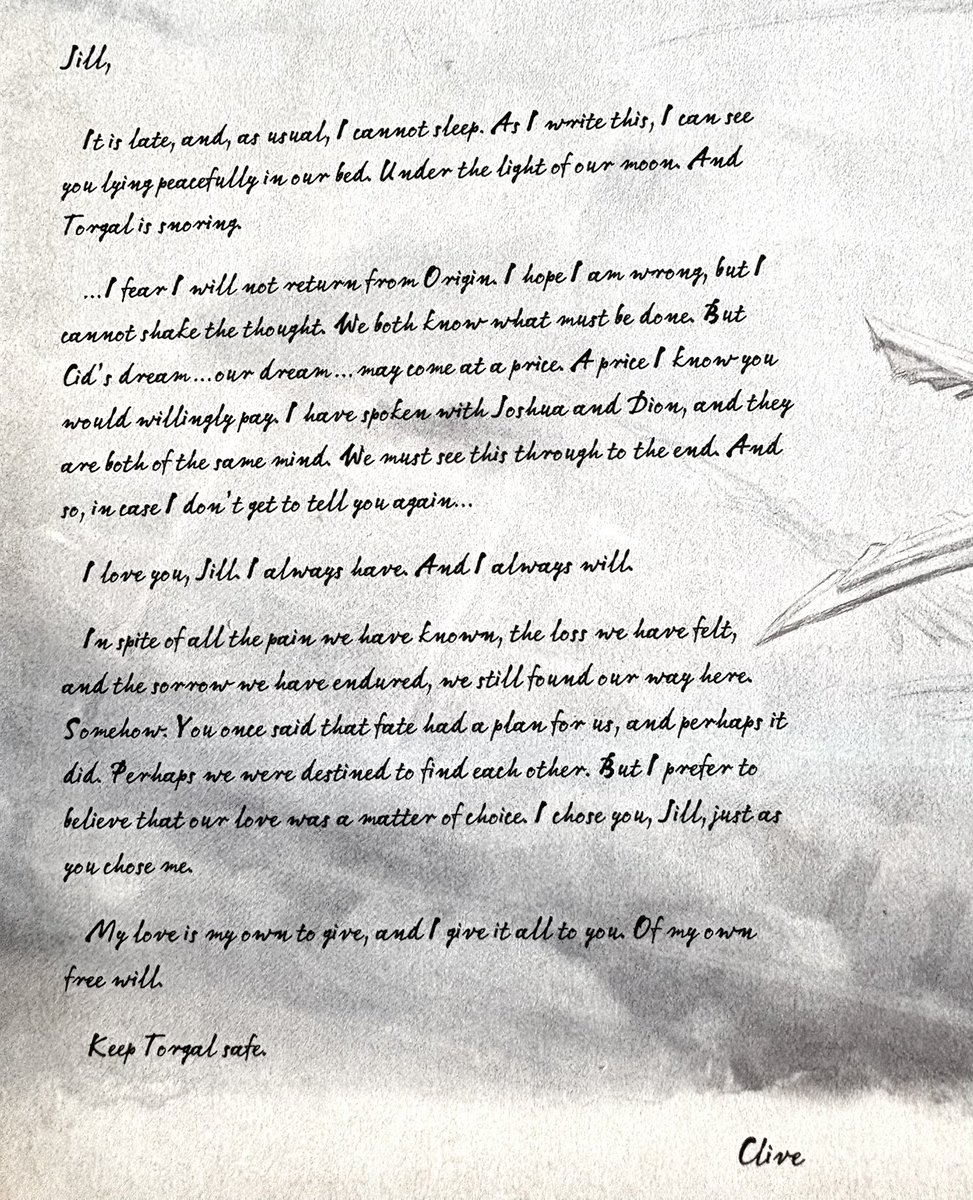 Jill,
It is late, and, as usual, I cannot sleep. As I write this, I can see
you lying peacefully in our bed. Under the light of our moon. And
Torgal is snoring.
...I fear I will not return from Origin. I hope I am wrong, but I
cannot shake the thought. We both know what must be done. But
Cid's dream...our dream... may come at a price. A price I know you
would willingly pay. I have spoken with Joshua and Dion, and they
are both of the same mind. We must see this through to the end. And
so, in case I don't get to tell you again...
I love you, Jill. I always have. And I always will.
In spite of all the pain we have known, the loss we have felt,
and the sorrow we have endured, we still found our way here.
Somehow. You once said that fate had a plan for us, and perhaps it
did. Perhaps we were destined to find each other. But I prefer to
believe that our love was a matter of choice. I chose you, Jill, just as
you chose me.
My love is my own to give, and I give it all to you. Of my own
free will.
Keep Torgal safe.
Clive